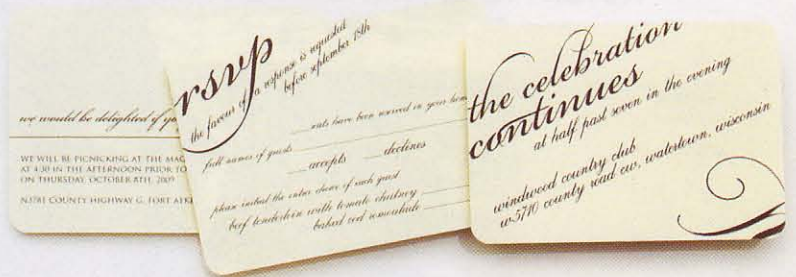 we would be delighted if
WE WILL BE PICNICKING AT THE
AT 4:30 IN THE AFTERNOON PRIOR TO
ON THURSDAY, OCTOBER 8TH, 2009
N3781 COUNTY HIGHWAY G, FORT
rsvp
the favour of a response is requested
before september 18th
seats have been reserved in your
full names of guests
__accepts __declines
please initial the entrée choice of each guest
beef tenderloin with tomato chutney
baked cod
the celebration
continues
at half past seven in the evening
windwood country club
w5710 county road cw, watertown, wisconsin